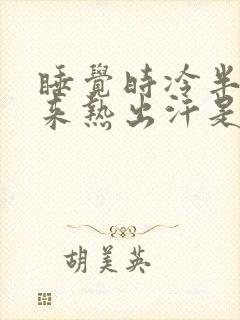 睡覺時冷半
來熱出汗是
胡美英